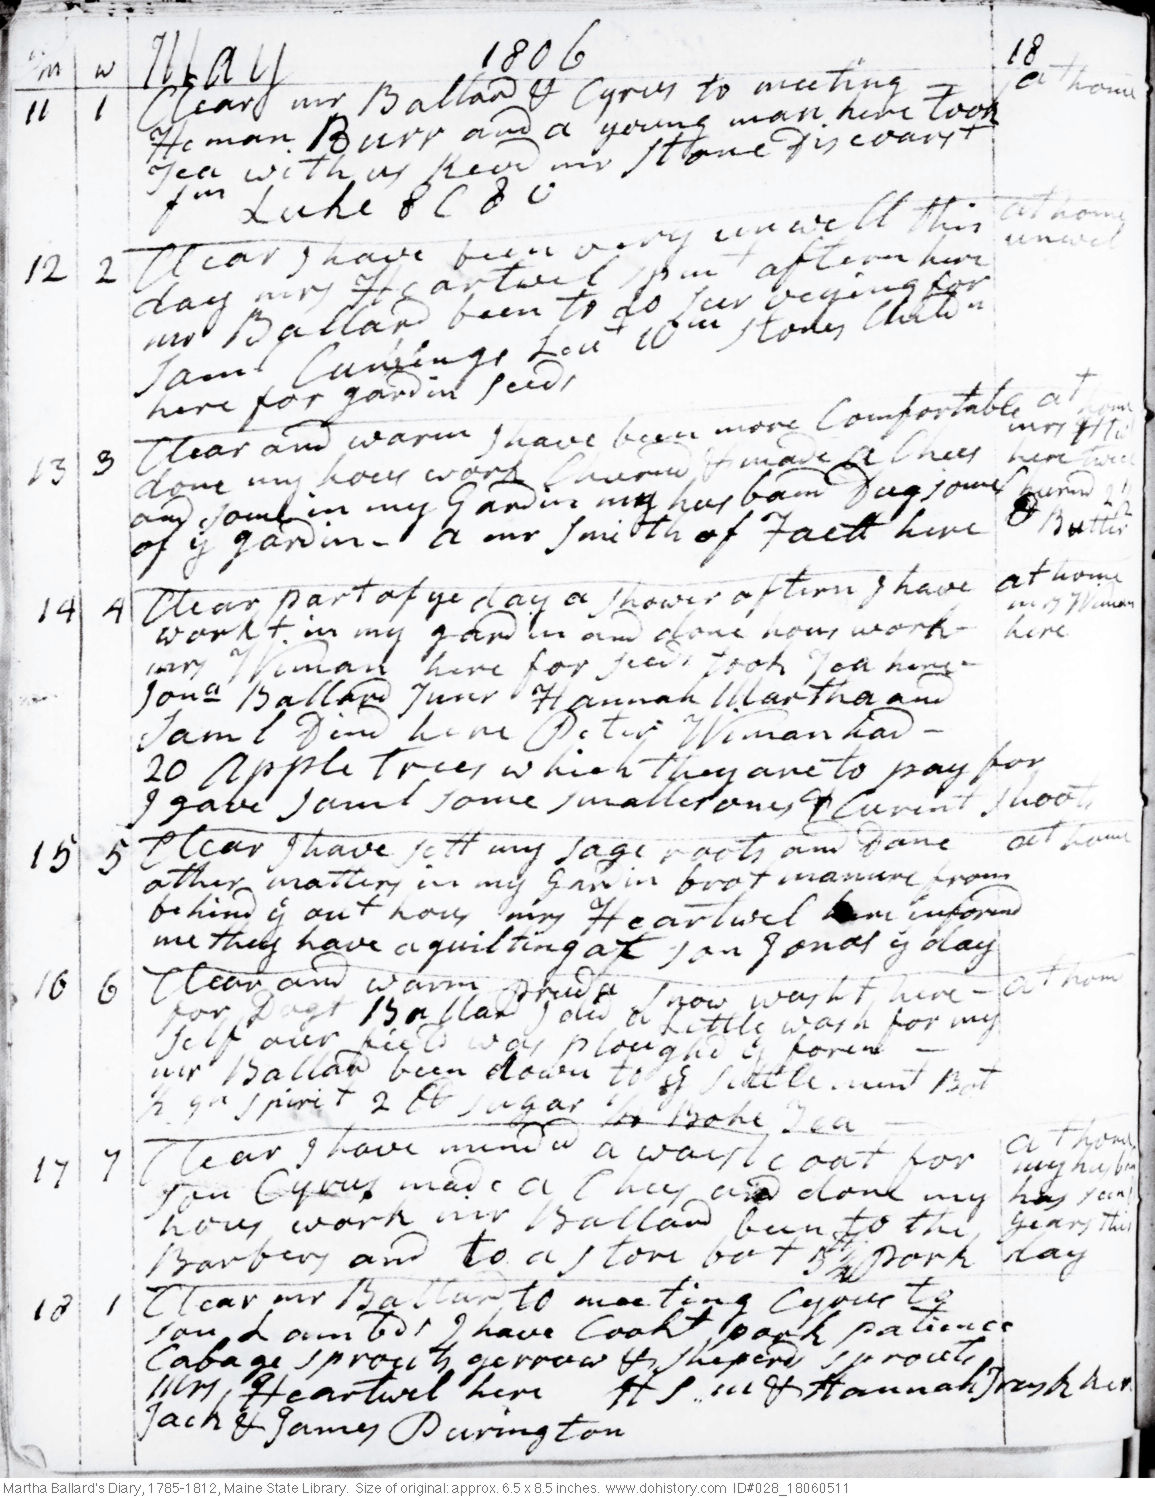 m w May 1806 18
11 1 Clear mr Ballard & Cyrus to meeting at home
Heman Burr and a young man here took
Tea with us Read mr Stone Discourst
fm Luke 8 C 8 v
12 2 Clear I have been very unwell this at home
day mrs Heartwel spint aftern here unwel
mr Ballard been to do surveyeing for
Saml Cumings Leut Wm Stones Childn
here for gardin seeds
13 3 Clear and warm I have been more Comfortable at home
done my hous work Churnd & made a Chees mrs
and some in my Gardin my husband Dug some here twice
of ye gardin - a mr Smith of Faett here Churnd Butter
14 4 Clear part of ye day a shower aftern I have at home
workt in my gardin and done hous work mrs Wiman
mrs Wiman here for seeds took Tea here - here
Jona Ballard Junr Hannah Martha and
Saml Dind here Peter Wiman had -
20 Apple Trees which they are to pay for
I gave Saml some smaller ones & Curent shoots
15 5 Clear I have sett my sage roots and Done at home
other matters in my Gardin brot manure from
behind ye out hous mrs Heartwel here informd
me they have a quilting at son Jonas ye day
16 6 Clear and warm prud at hom
for Dagt Ballard Snow washt here -
I did a little wash for my
self our field was ploughd ye foren -
mr Ballard been down to ye settlement Bot
spirit 2 lb sugar Bohe Tea -
17 7 Clear I have mended a waistcoat for at home
son Cyrus made a Chees and done my my husbn
hous work mr Ballard been to the has
Barbers and to a store bot 5 1/2 lb pork years this day
18 1 Clear mr Ballard to meeting Cyrus to
son Lambds I have Cookt pork patience
Cabage sprouts yerrow & sheperd sprouts
mrs Heartwel here & Hannah Trask here
Jack & James Purington
Martha Ballard's Diary, 1785-1812, Maine State Library. Size of original: approx. 6.5 x 8.5 inches. www.dohistory.com ID#028_18060511